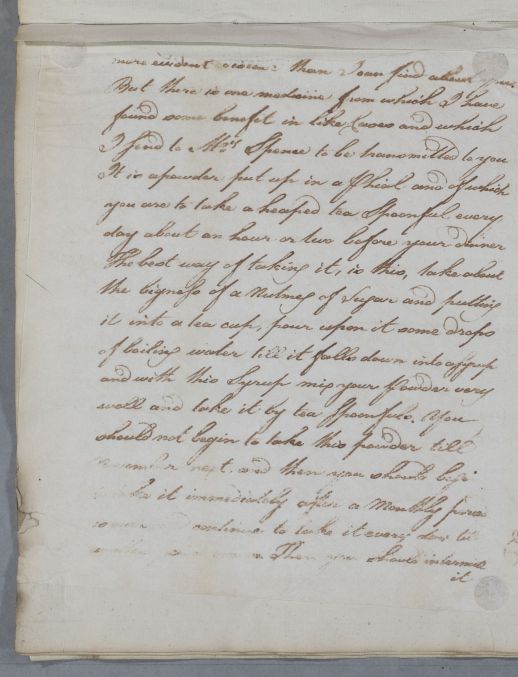 more evident than I can find about you
But there is one medicine from which I have
found some benefit in like Cases and which
I send to Mrs Spence to be transmitted to you
It is a powder put up in a Phial and of which
you are to take a heaped tea Spoonful every
day about an hour or two before your dinner
The best way of taking it, is this, take about
the bigness of a Nutmeg of Sugar and putting
it into a tea cup, pour upon it some drops
of boiling water till it falls down into a Syrup
and with this Syrup mix your Powder very
well and take it by tea Spoonfuls. You
should not begin to take this powder till
next and then you should
it immediately after a Monthly
continue to take it every day
Then you should intermit
it